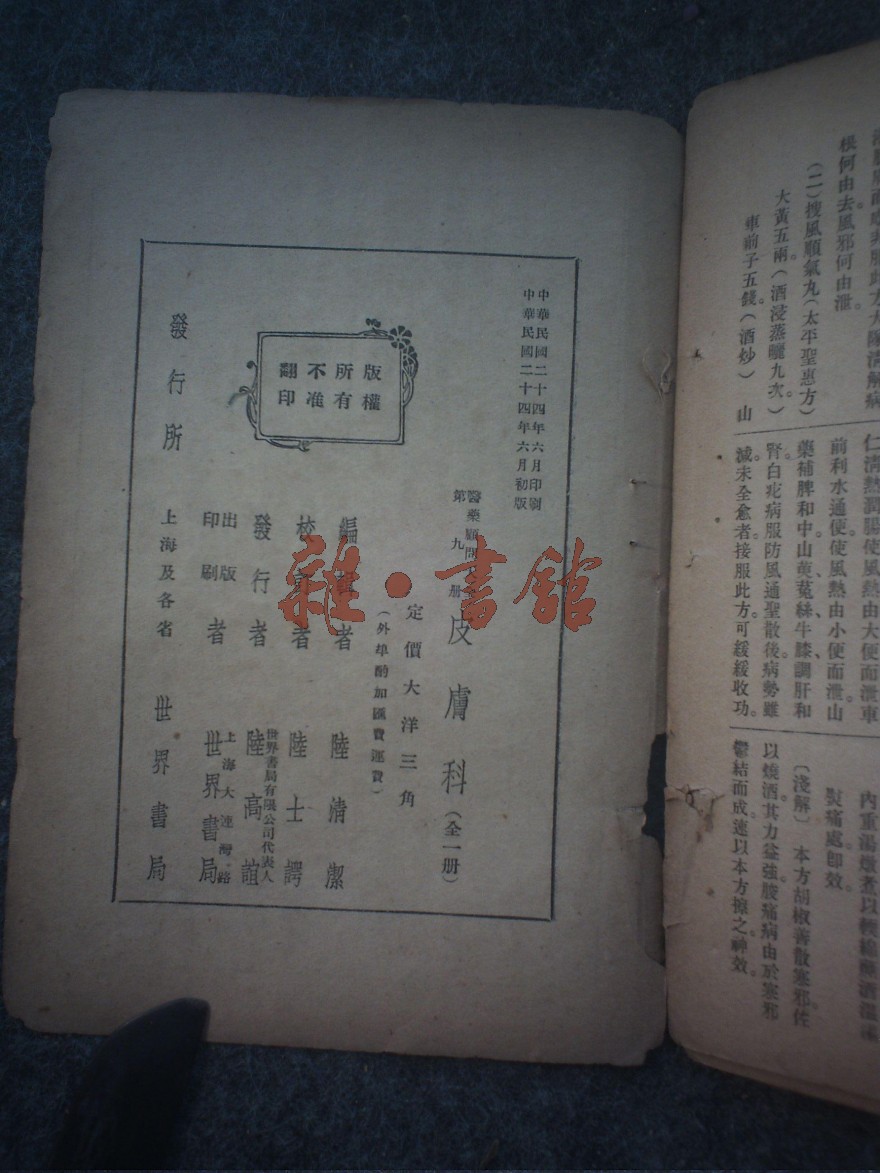 根何由去風邪何由泄。
(二)搜風順氣丸(太平聖惠方)
大黃五兩。(酒浸蒸曬九次。)
車前子五錢。(酒炒) 山
仁淸熱潤腸使風熱由大便而泄車
前利水通便使風熱由小便而泄山
藥補脾和中山萸菟絲牛膝調肝和
腎。白疕病服防風通聖散後病勢雖
減未全愈者接服此方可緩緩收功。
內重湯燉煮以
熨痛處卽效。
〔淺解〕本方胡椒善散寒邪佐
以燒酒其力益強腹痛病由於寒邪
鬱結而成速以本方擦之神效。
中華民國二十四年六月印刷
中華民國二十四年六月初版
醫藥顧問
第九册
皮膚科(全一册)
定價大洋三角
(外埠酌加匯費運費)
版權所有不准翻印
編輯者 陸淸潔
校訂者 陸士諤
發行者 世界書局有限公司代表人 陸高誼
出版印刷者 上海大連灣路 世界書局
發行所 上海及各省 世界書局
雜·書館